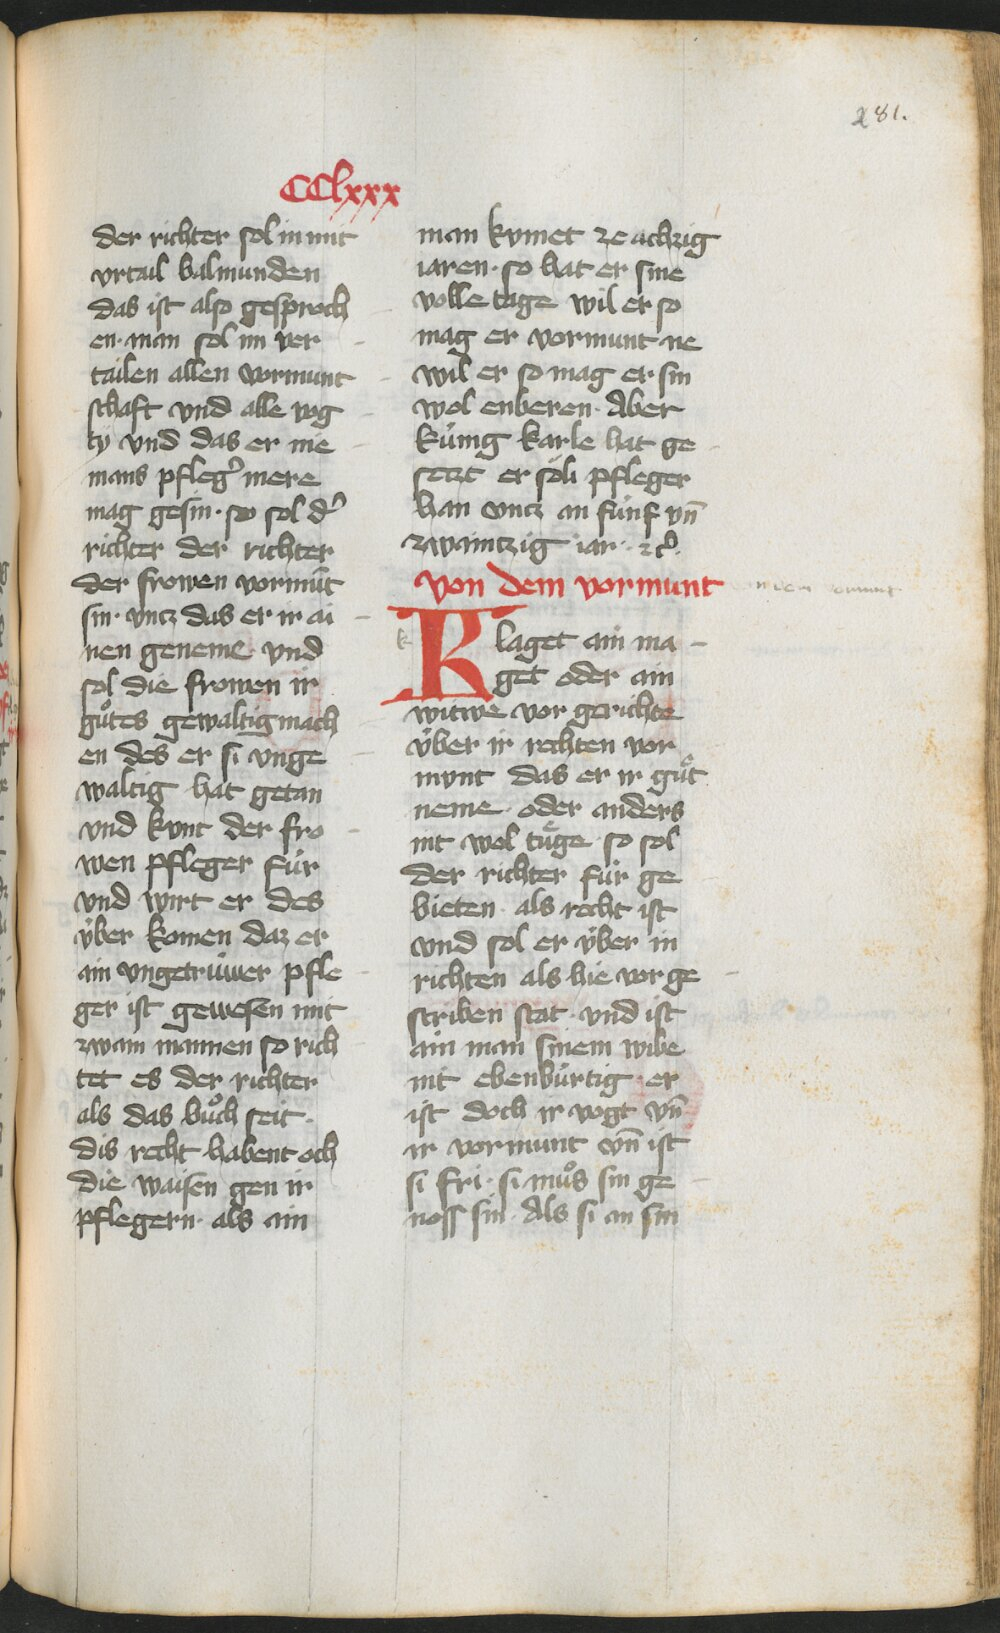 281.
CClxxx
der richter sol in mit
vrtail balmunden
das ist also gesproch
en· man sol im ver
tailen allen vormunt
schaft vnd alle vog
ty vnd das er nie
mans pfleg᾽ mere
mag gesin· so sol d᾽
richter der richter
der frowen vormūt
sin· vntz das er ir ai
nen geneme· vnd
sol die frowen ir
gůtes gewaltig mach
en des er si vnge
waltig hat getan
vnd kvnt der fro
wen pfleger für
vnd wirt er des
v́ber komen daz er
ain vngetrüwer pfle
ger ist gewesen mit
zwain mannen so rich
tet es der richter
als das bůch seit·
dis recht habent och
die waisen gen ir
pflegern· als ain
man kvmet ze achzig
iaren· so hat er sine
volle tage wil er so
mag er vormunt ne
wil er so mag er sin
wol enberen· Aber
kúnig karle hat ge
setzt er söli pfleger
han vntz an fúnf vn̄
zwaintzig iar· ⁊c᾽.
von dem vormunt
Klaget ain ma
get oder ain
witwe vor gerichte
v́ber ir rechten vor
mvnt das er ir gůt
neme· oder anders
nit wol tuͤge· so sol
der richter fúr ge
bieten· als recht ist
vnd sol er v́ber in
richten als hie vor ge
scriben stat· vnd ist
ain man sinem wibe
nit ebenbúrtig· er
ist doch ir vogt vn̄
ir vormunt vn̄ ist
si fri· si můs sin ge
noss sin· Als si an sin